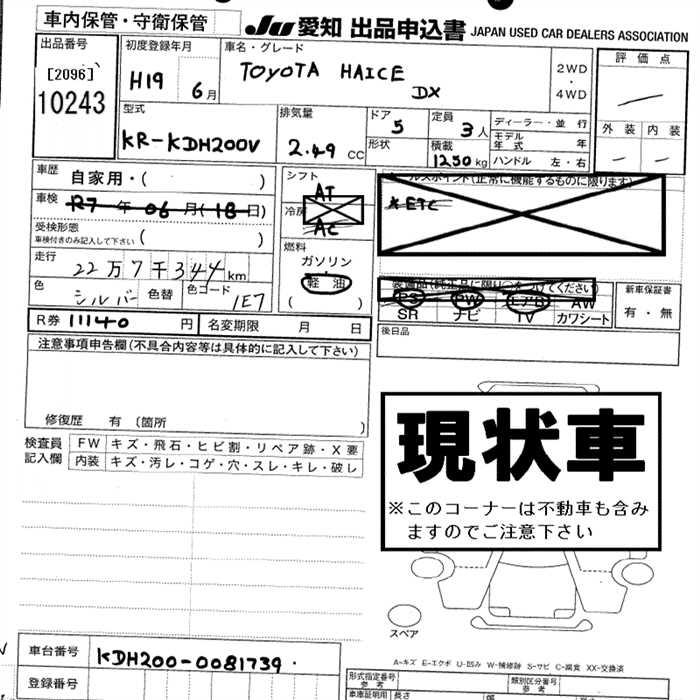 車内保管・守衛保管
JU 愛知 出品申込書 JAPAN USED CAR DEALERS ASSOCIATION
出品番号
[2096]
10243
初度登録年月
H19 6月
車名・グレード
TOYOTA HAICE
DX
2WD
・
4WD
評価点
外装 内装
型式
KR-KDH200V
排気量
2.49 CC
ドア
5
形状
定員
3人
積載
1250kg
ディーラー・並行
モデル年式 年
ハンドル 左・右
車歴
自家用・( )
車検
R7年06月(18日)
受検形態
車検付きのみ記入して下さい ( )
走行
22万7千344km
色 シルバー 色替 色コード 1E7
シフト
AT
冷房
AC
燃料
ガソリン
・
軽油
( )
セールスポイント(正常に機能するものに限ります)
*ETC
装備品(純正品に限り○をつけてください)
PS PW エアB AW
SR ナビ TV カワシート
新車保証書
有・無
後日品
R券 11140円 名変期限 月 日
注意事項申告欄(不具合内容等は具体的に記入して下さい)
修復歴 有 (箇所 )
検査員
記入欄
FW キズ・飛石・ヒビ割・リペア跡・X要
内装 キズ・汚レ・コゲ・穴・スレ・キレ・破レ
現状車
※このコーナーは不動車も含み
ますのでご注意下さい
スペア
A-キズ E-エクボ U-凹み W-補修跡 S-サビ C-腐食 XX-交換済
車台番号 KDH200-0081739
登録番号
形式指定番号
参考
類別区分番号
参考
車車証明用 長さ 幅 高さ